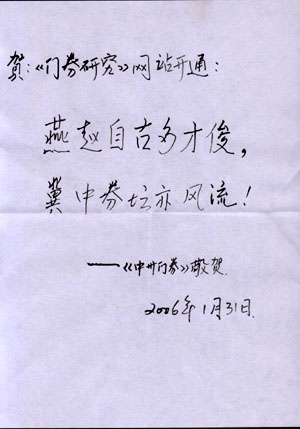 贺:《门券研究》网站开通:
燕赵自古多才俊,
冀中券坛亦风流!
——《中州门券》敬贺.
2006年1月31日.